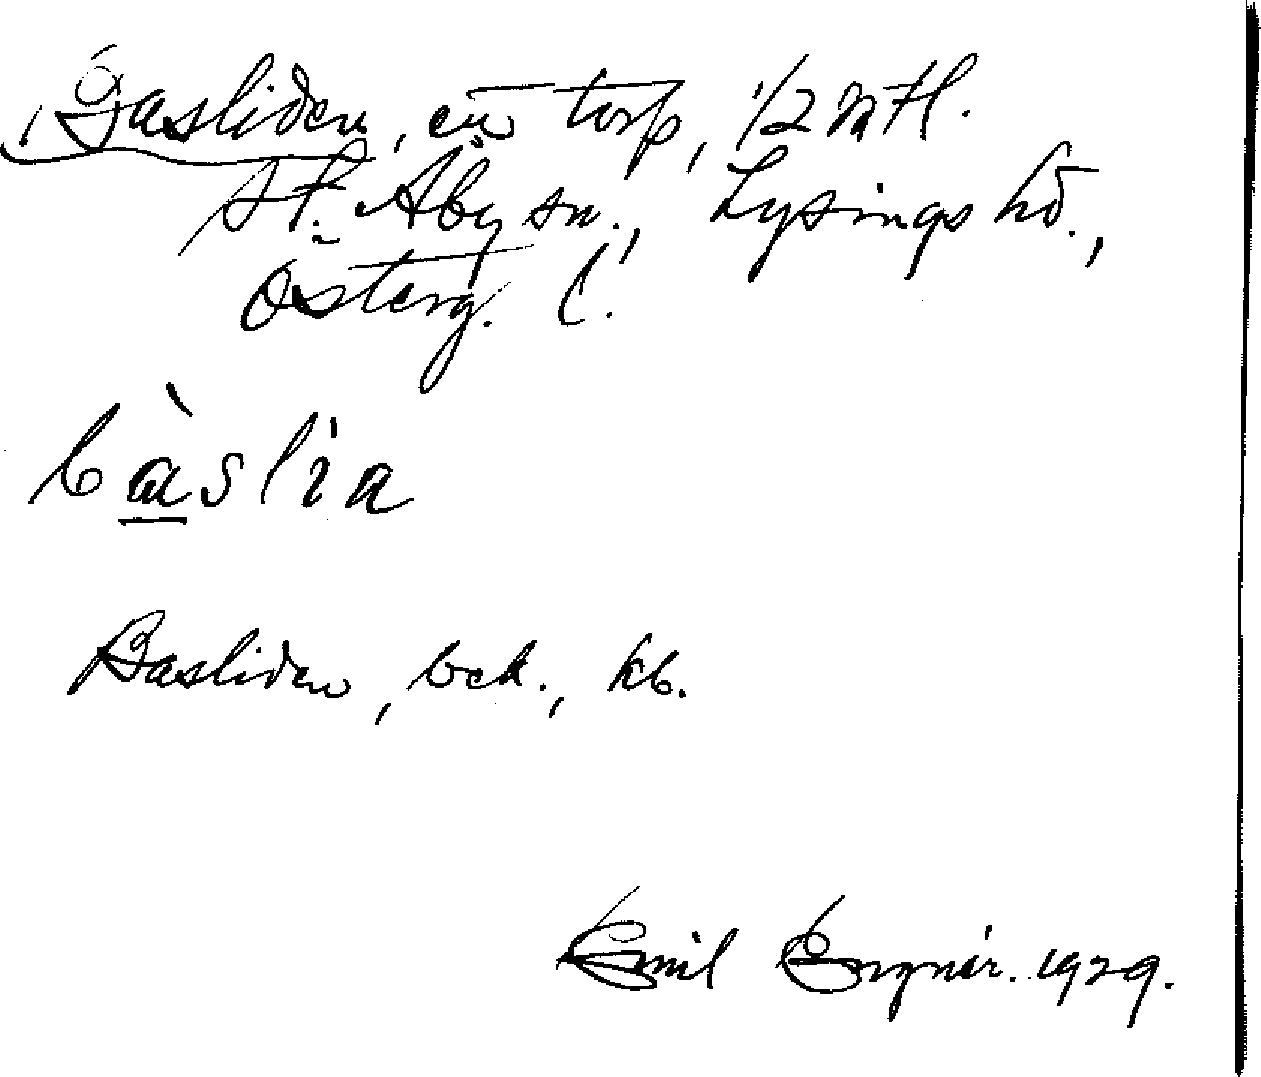 Basliden, en torp, 1/2 mtl.
St. Åby sn., Lysings hd.,
Österg. l.
bàslia
Basliden, bek., kb.
Emil Ergnér. 1929.